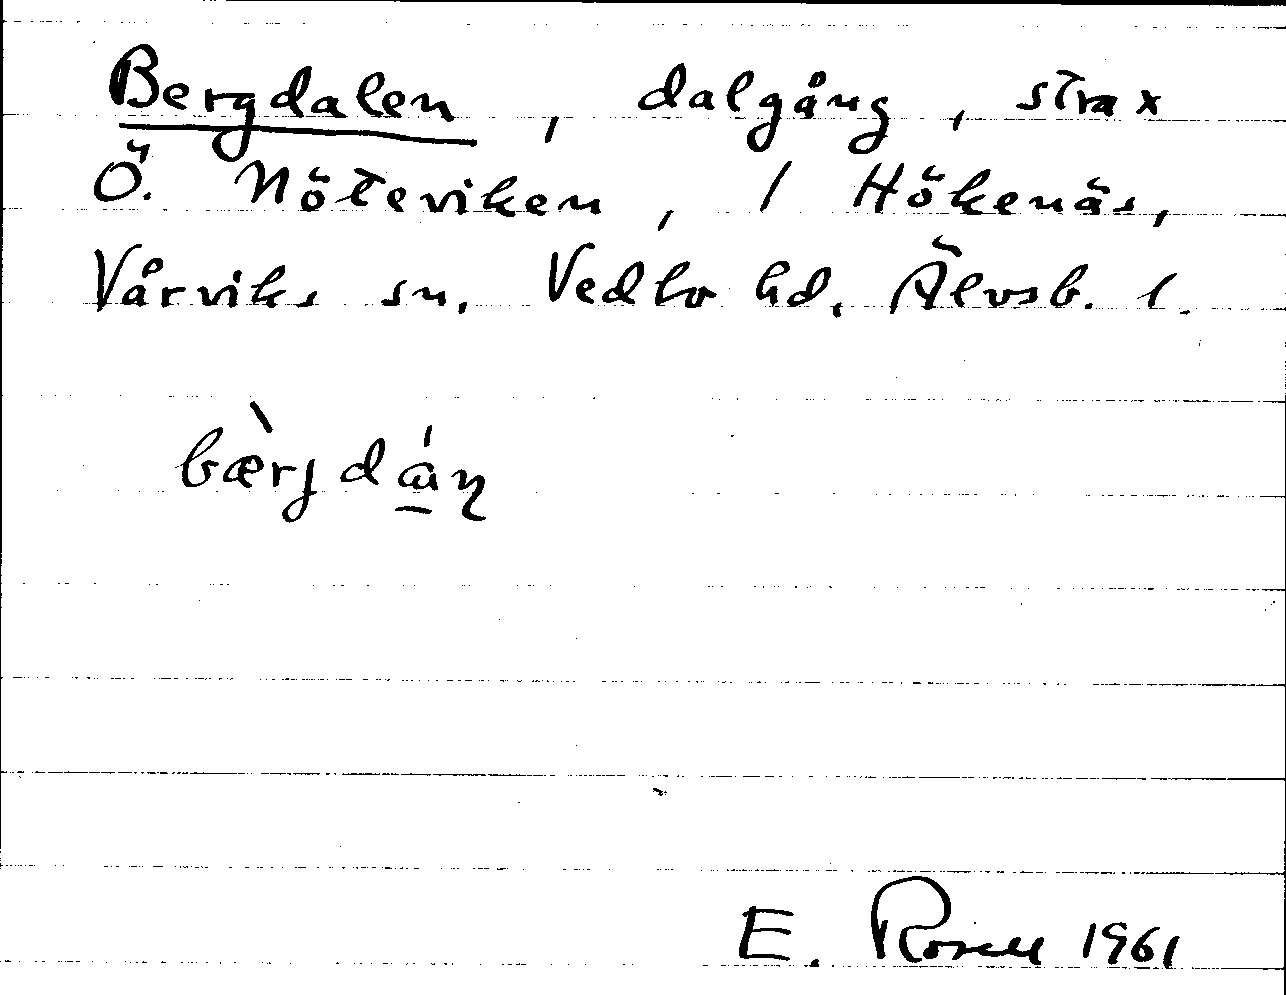 Bergdalen, dalgång, strax
Ö. Nöteviken, / Hökenäs,
Vårviks sn. Vedbo hd, Älvsb. l.
bæ̀rjdán
E. Rosell 1961